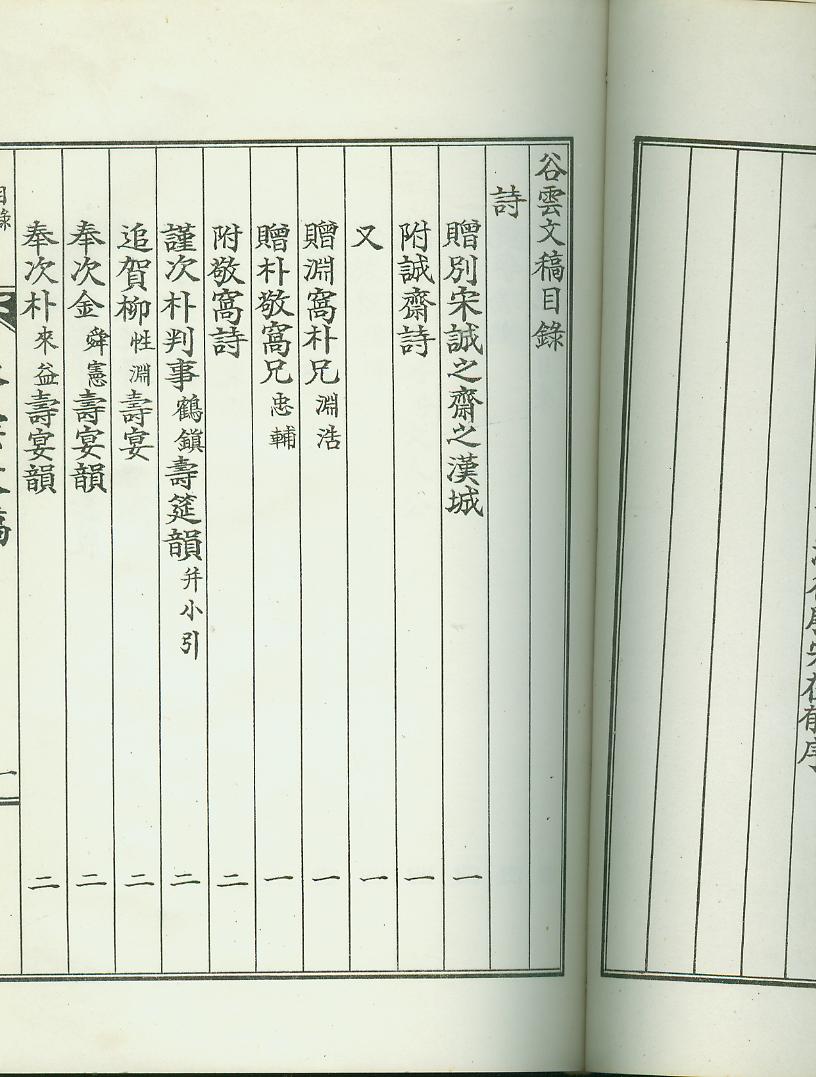 谷雲文稿目錄
詩
贈別宋誠之齋之漢城 一
附誠齋詩 一
又 一
贈淵窩朴兄淵浩 一
贈朴敬窩兄忠輔 一
附敬窩詩 二
謹次朴判事鶴鎭壽筵韻并小引 二
追賀柳性淵壽宴 二
奉次金舜憲壽宴韻 二
奉次朴來益壽宴韻 二
目錄
一